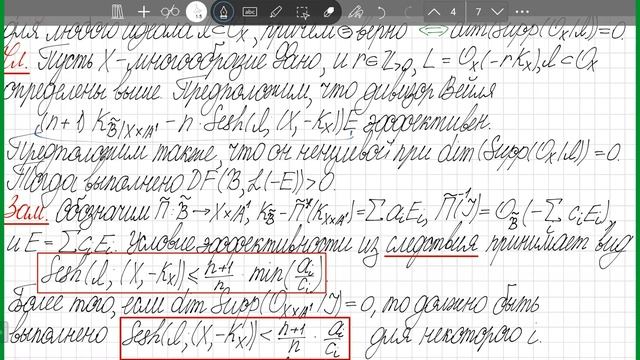 4 7
для любого идеала 𝓘⊂O_X, причем "=" верно ⟺ dim(Supp(O_X/𝓘))=0.
Сл. Пусть X-многообразие Фано, и r∈ℤ_{>0}, L = O_X(-rK_X), 𝓘⊂O_X
определены выше. Предположим, что дивизор Вейля
(n+1) K_{B̃/X×A¹} - n · Sesh(𝓘, (X, -K_X))E эффективен.
Предположим также, что он ненулевой при dim(Supp(O_X/𝓘)) = 0.
Тогда выполнено DF(B̃, L(-E))>0.
Зам. Обозначим Π̃: B̃ → X×A¹, K_B̃ - Π̃*(K_{X×A¹}) = ∑a_iE_i, Π̃⁻¹(J) = O_B̃(-∑c_iE_i),
и E = ∑c_iE_i. Условие эффективности из следствия принимает вид
Sesh(𝓘, (X, -K_X)) ≤ (n+1)/n · min(a_i/c_i)
Более того, если dim Supp(O_{X×A¹}/J) = 0, то должно быть
выполнено Sesh(𝓘, (X, -K_X)) < (n+1)/n · a_i/c_i для некоторого i.